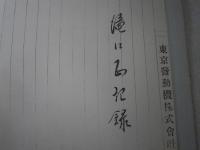 滝口正記録
東京發動機株式會社